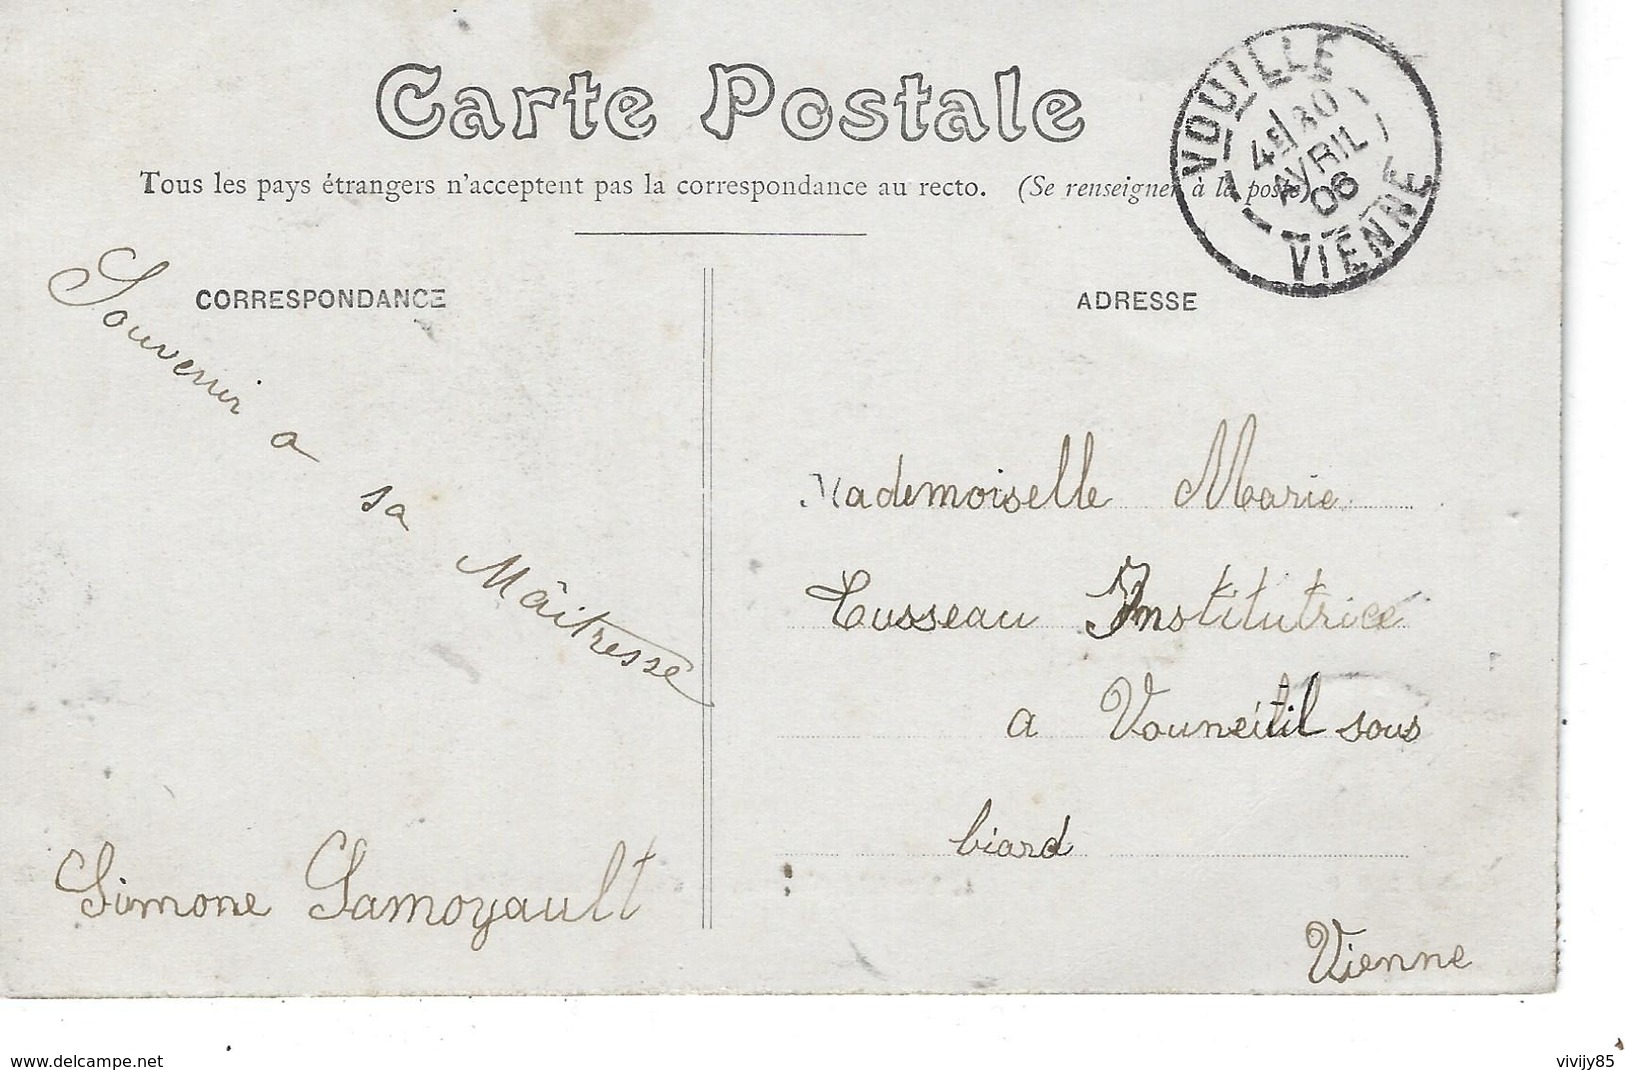 Carte Postale
Tous les pays étrangers n'acceptent pas la correspondance au recto. (Se renseigner à la poste)
VOUILLE
4E 30
AVRIL
06
VIENNE
CORRESPONDANCE
Souvenir a sa Mâitresse
Simone Samoyault
ADRESSE
Mademoiselle Marie
Cusseau Institutrice
a Vouneuil sous
biard
Vienne
www.delcampe.net
vivijy85